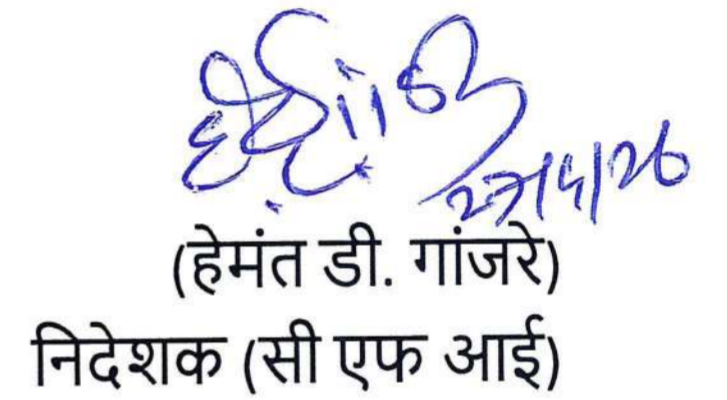 27/4/26
(हेमंत डी. गांजरे)
निदेशक (सी एफ आई)